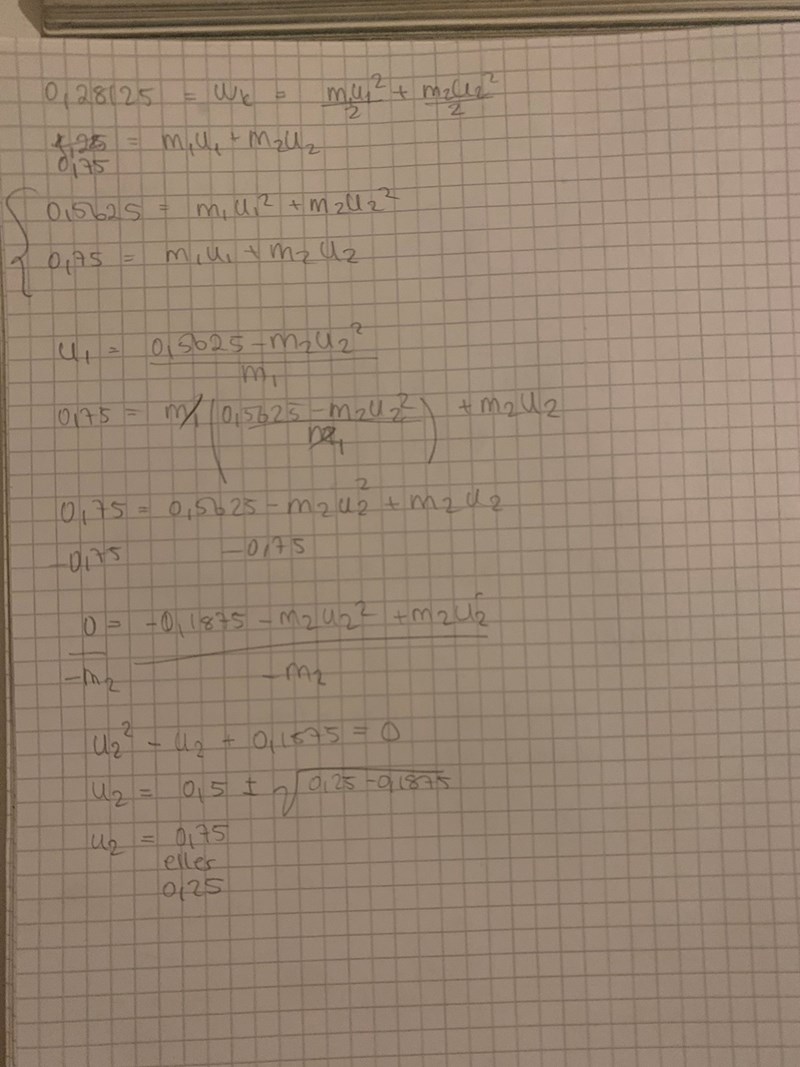 0,28125 = Wk = m₁u₁²/2 + m₂u₂²/2
1,25 = m₁u₁ + m₂u₂
0,75
0,5625 = m₁u₁² + m₂u₂²
0,75 = m₁u₁ + m₂u₂
u₁ = (0,5625 - m₂u₂²)/m₁
0,75 = m₁((0,5625 - m₂u₂²)/m₁) + m₂u₂
0,75 = 0,5625 - m₂u₂² + m₂u₂
-0,75 -0,75
0/-m₂ = (-0,1875 - m₂u₂² + m₂u₂)/-m₂
u₂² - u₂ + 0,1875 = 0
u₂ = 0,5 ± √(0,25 - 0,1875)
u₂ = 0,75
eller
0,25